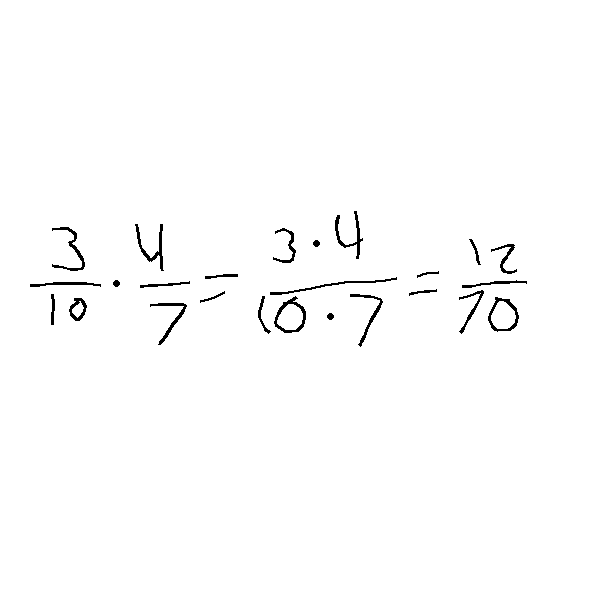 3/10 · 4/7 = 3 · 4/10 · 7 = 12/70